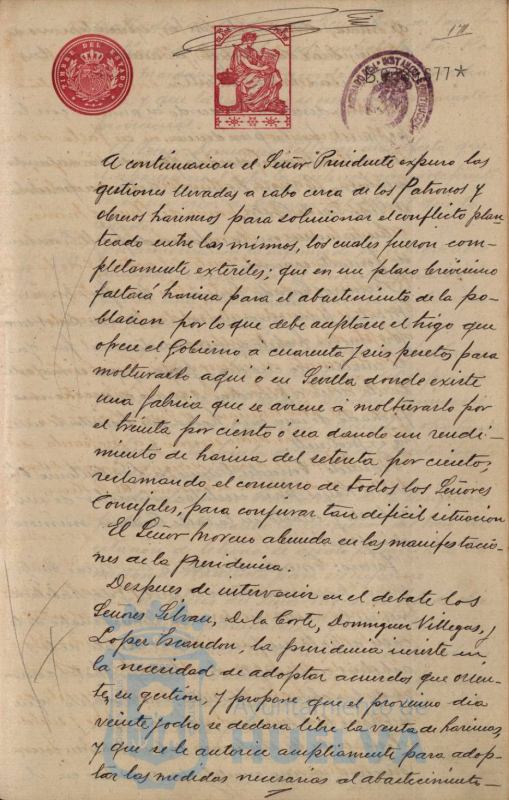 171
TIMBRE DEL ESTADO
A continuacion el Señor Presidente expuso las
gestiones llevadas a cabo cerca de los Patronos y
obreros harineros para solucionar el conflicto plan-
teado entre los mismos, los cuales fueron com-
pletamente esteriles; que en un plazo brevisimo
faltará harina para el abastecimiento de la po-
blacion por lo que debe aceptarse el trigo que
ofrece el Gobierno á cuarenta y seis pesetas para
molturarlo aqui ó en Sevilla donde existe
una fabrica que se aviene á molturarlo por
el treinta por ciento ó sea dando un rendi-
miento de harina del setenta por ciento,
reclamando el concurso de todos los Señores
Concejales, para conjurar tan dificil situacion
El Señor Moreno abunda en las manifestacio-
nes de la Presidencia.
Despues de intervenir en el debate los
Señores Silvan, De la Corte, Dominguez Villegas, y
Lopez Escandon, la presidencia insiste en
la necesidad de adoptar acuerdos que orien-
ten su gestión, y propone que el proximo dia
veinte y ocho se declara libre la venta de harinas
y que se le autorice ampliamente para adop-
tar las medidas necesarias al abastecimiento